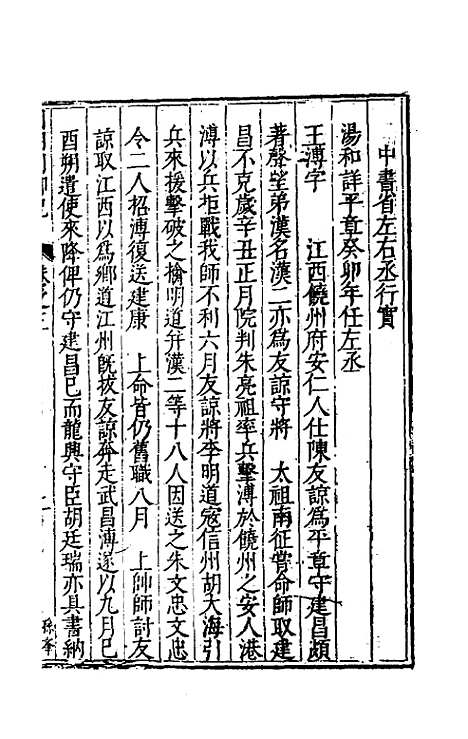 中書省左右丞行實
湯和詳平章癸卯年任左丞
王溥字　江西饒州府安仁人仕陳友諒爲平章守建昌頗
著聲望弟漢名漢二亦爲友諒守將　太祖南征嘗命師取建
昌不克歲辛丑正月院判朱亮祖率兵擊溥於饒州之安人港
溥以兵拒戰我師不利六月友諒將李明道寇信州胡大海引
兵來援擊破之擒明道并漢二等十八人因送之朱文忠文忠
令二人招溥復送建康　上命皆仍舊職八月　上帥師討友
諒取江西以爲鄉道江州既拔友諒奔走武昌溥遂以九月己
酉朔遣使來降俾仍守建昌已而龍興守臣胡廷瑞亦具書納
孫奎